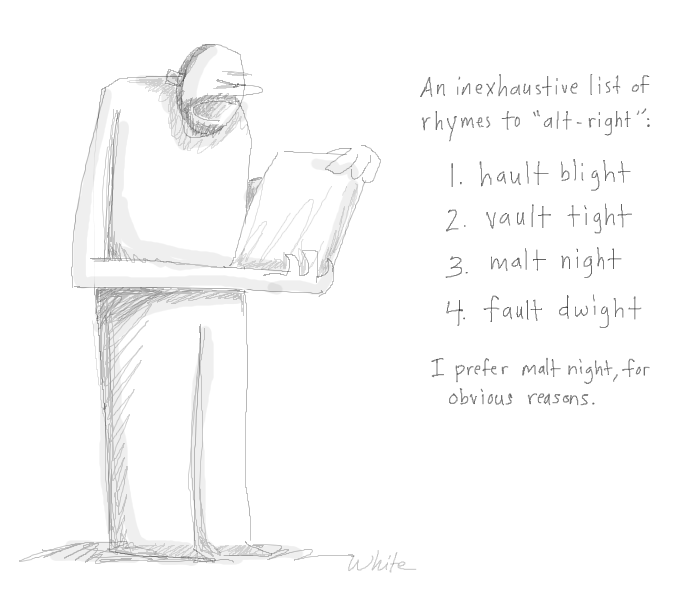 An inexhaustive list of
rhymes to "alt-right":
1. hault blight
2. vault tight
3. malt night
4. fault dwight
I prefer malt night, for
obvious reasons.
White